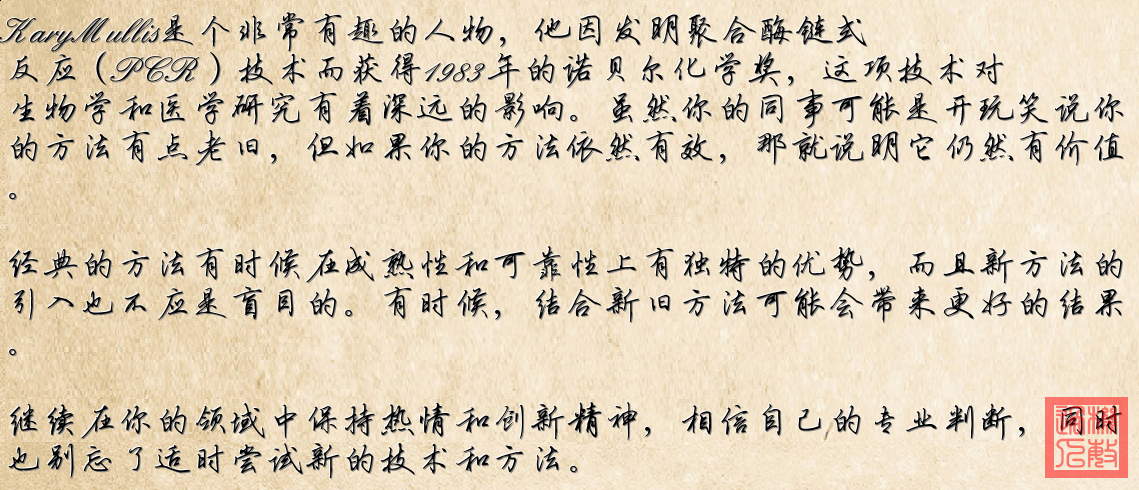 KaryMullis是个非常有趣的人物，他因发明聚合酶链式
反应（PCR）技术而获得1983年的诺贝尔化学奖，这项技术对
生物学和医学研究有着深远的影响。虽然你的同事可能是开玩笑说你
的方法有点老旧，但如果你的方法依然有效，那就说明它仍然有价值
。
经典的方法有时候在成熟性和可靠性上有独特的优势，而且新方法的
引入也不应是盲目的。有时候，结合新旧方法可能会带来更好的结果
。
继续在你的领域中保持热情和创新精神，相信自己的专业判断，同时
也别忘了适时尝试新的技术和方法。